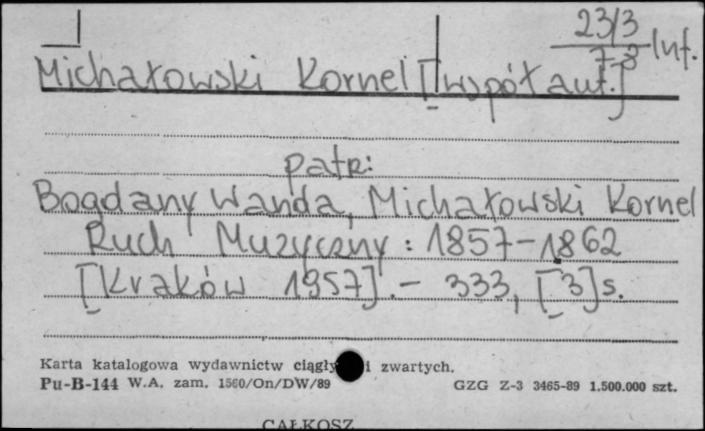 23/3
7-8 Inf.
Michałowski Kornel [współaut.]
patrz:
Bogdany Wanda, Michałowski Kornel
Ruch Muzyczny : 1857-1862
[Kraków 1957]. - 333, [3]s.
Karta katalogowa wydawnictw ciągły i zwartych.
Pu-B-144 W.A. zam. 1560/On/DW/89 GZG Z-3 3465-89 1.500.000 szt.
CAŁKOSZ